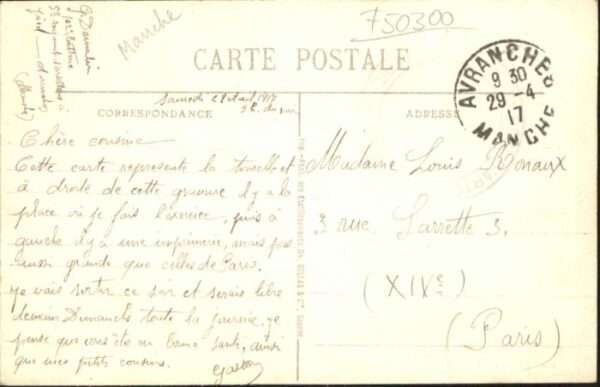 Manche
750300
CARTE POSTALE
AVRANCHES
9 30
29-4
17
MANCHE
CORRESPONDANCE
ADRESSE
Samedi
Chère cousine
Cette carte représente la
à droite de cette gravure il y a la
place où je fais l'exercice, puis à
gauche il y a une imprimerie, mais pas
aussi grande que celles de Paris.
je vais sortir ce soir et serais libre
demain Dimanche toute la journée. je
pense que vous êtes en bonne santé, ainsi
que mes petits cousins.
Gaston
Madame Louis Ronaux
3 rue Larrette 3.
(XIVe)
(Paris)